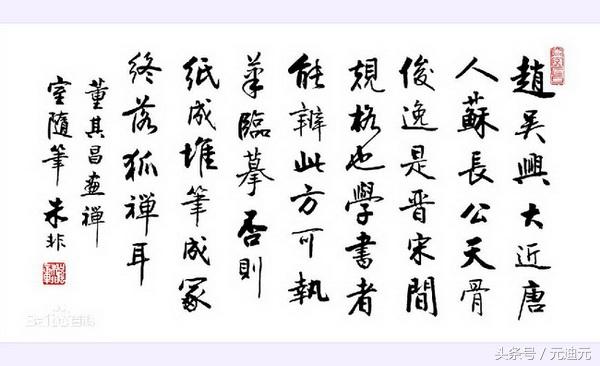 趙吳興大近唐
人蘇長公天骨
俊逸是晋宋間
規格也學書者
能辨此方可執
筆臨摹否則
紙成堆筆成冢
終落狐禪耳
董其昌畫禪
室隨筆 朱非
Bai百科
头条号 / 元迪元